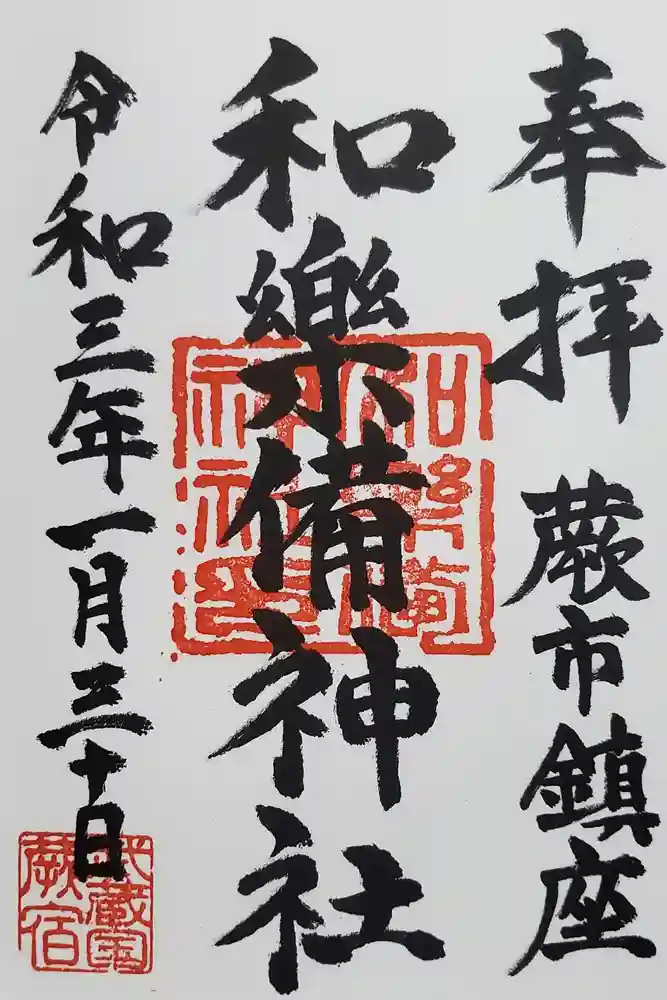 奉拝 蕨市鎮座
和樂備神社
令和三年一月三十日
和樂備神社印
武蔵国蕨宿